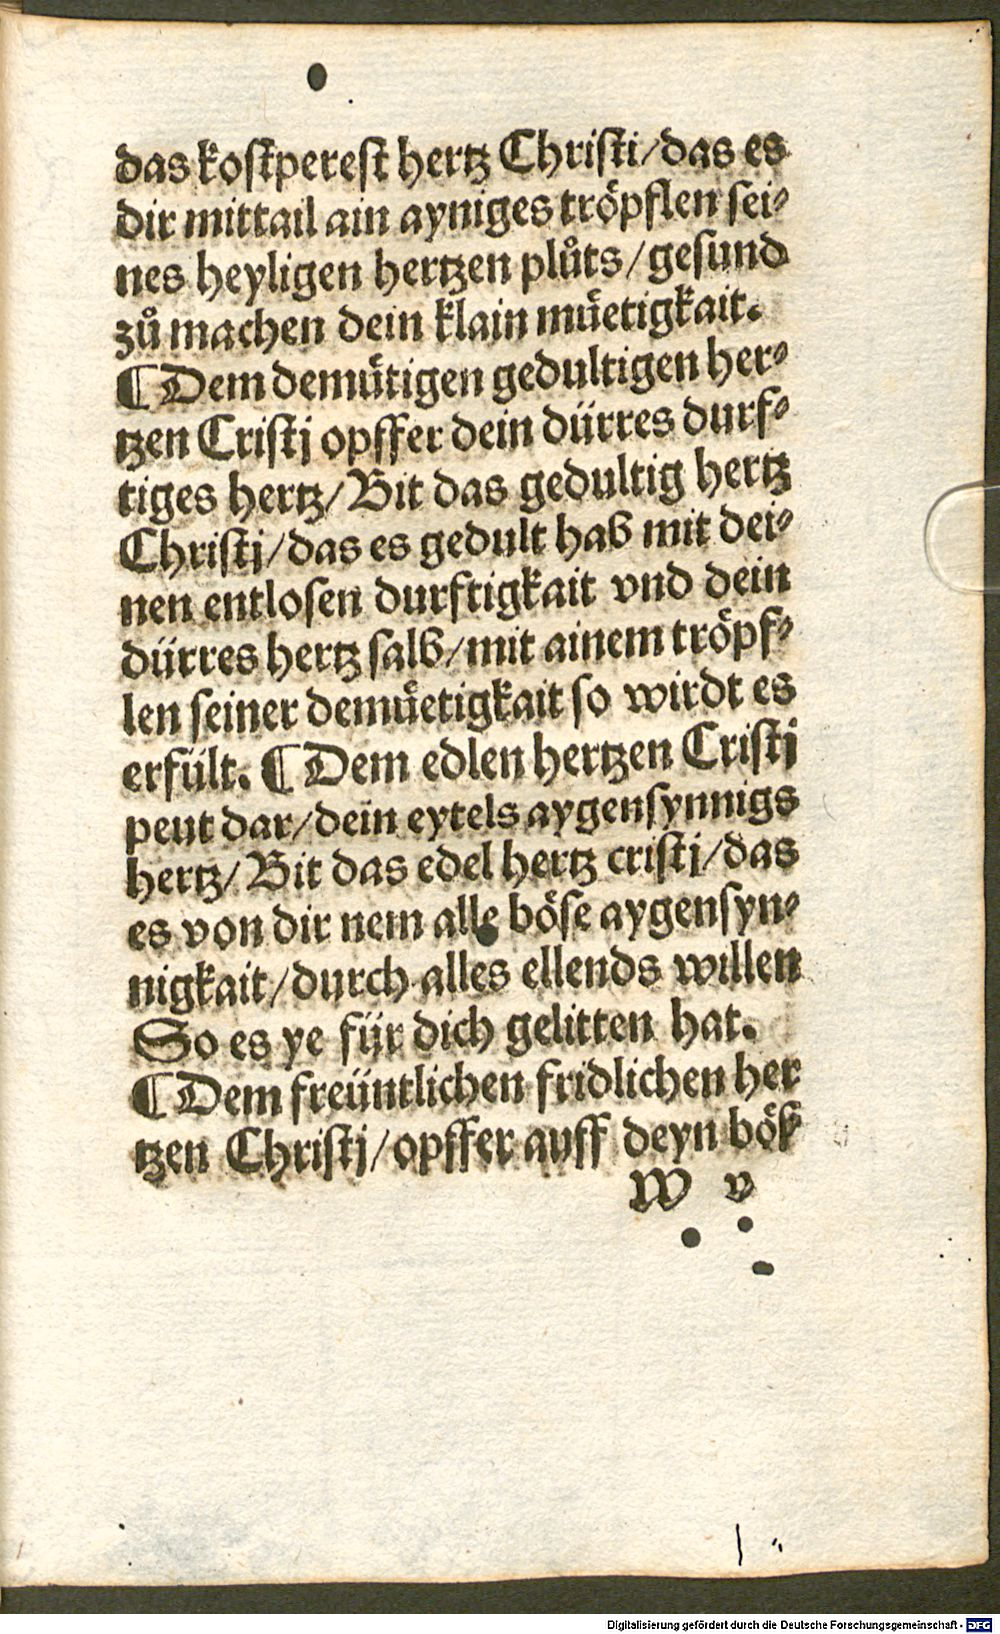 das kostperest hertz Christi/das es
dir mittail ain ayniges tröpflen sei⸗
nes heyligen hertzen plůts/gesund
zů machen dein klain muͤetigkait.
¶ Dem demuͤtigen gedultigen her⸗
tzen Cristj opffer dein dürres durf⸗
tiges hertz/Bit das gedultig hertz
Christj/das es gedult hab mit dei⸗
nen entlosen durftigkait vnd dein
dürres hertz salb/mit ainem tröpf⸗
len seiner demuͤetigkait so wirdt es
erfült. ¶ Dem edlen hertzen Cristj
peut dar/dein eytels aygensynnigs
hertz/Bit das edel hertz cristj/das
es von dir nem alle böse aygensyn⸗
nigkait/durch alles ellends willen
So es ye für dich gelitten hat.
¶ Dem freüntlichen fridlichen her
tzen Christj/opffer auff deyn böß
W v
Digitalisierung gefördert durch die Deutsche Forschungsgemeinschaft - DFG